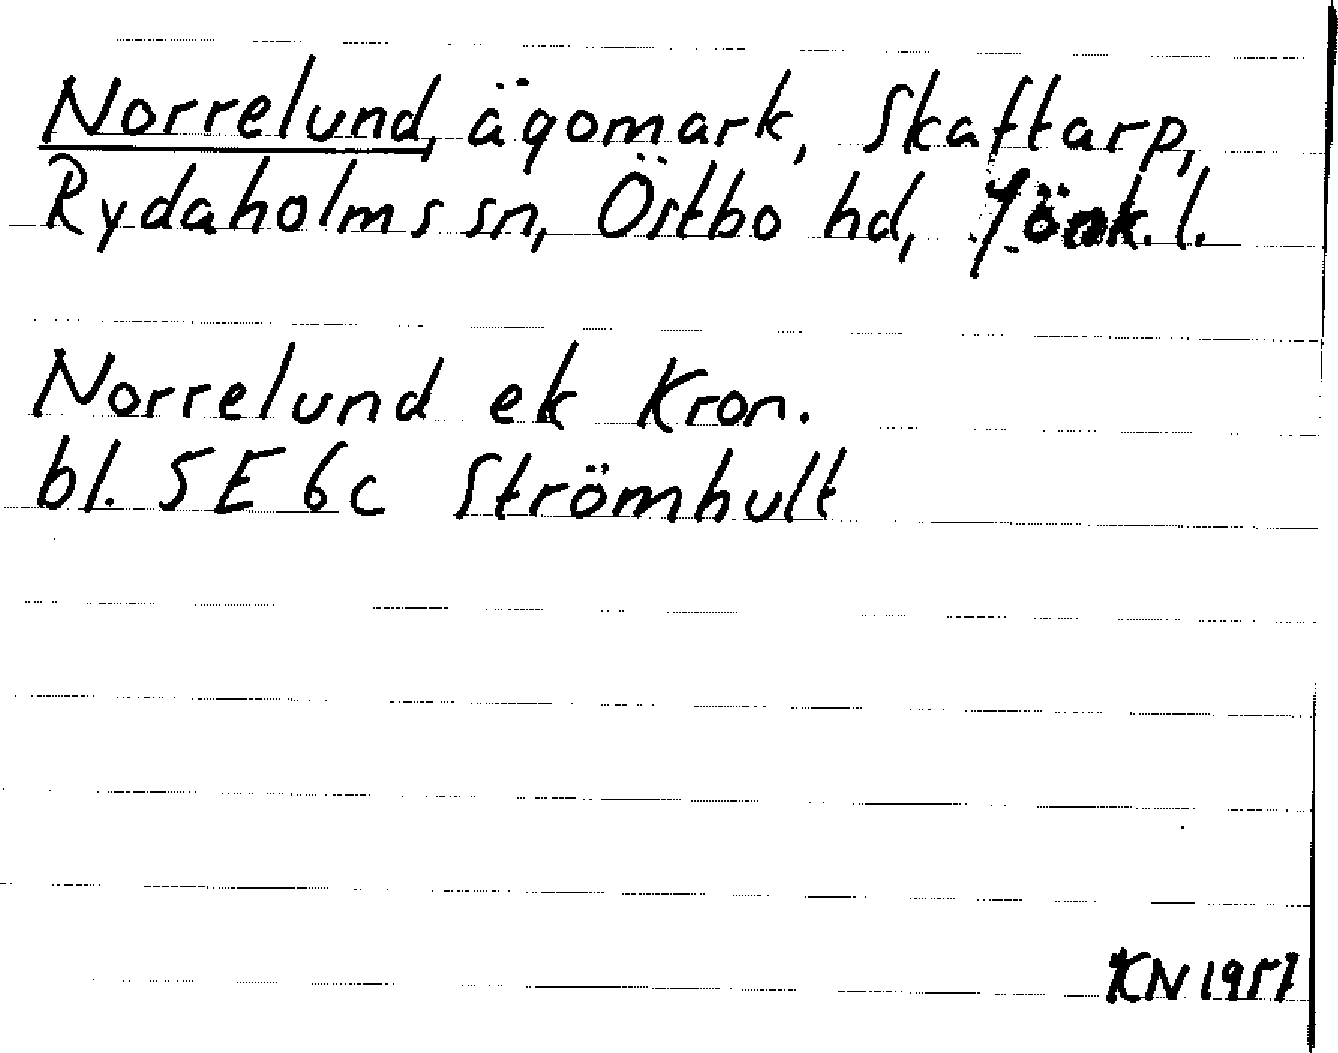 Norrelund, ägomark, Skaftarp,
Rydaholms sn, Östbo hd, Jönk. l.
Norrelund ek Kron.
bl. 5E 6c Strömhult
KN 1957